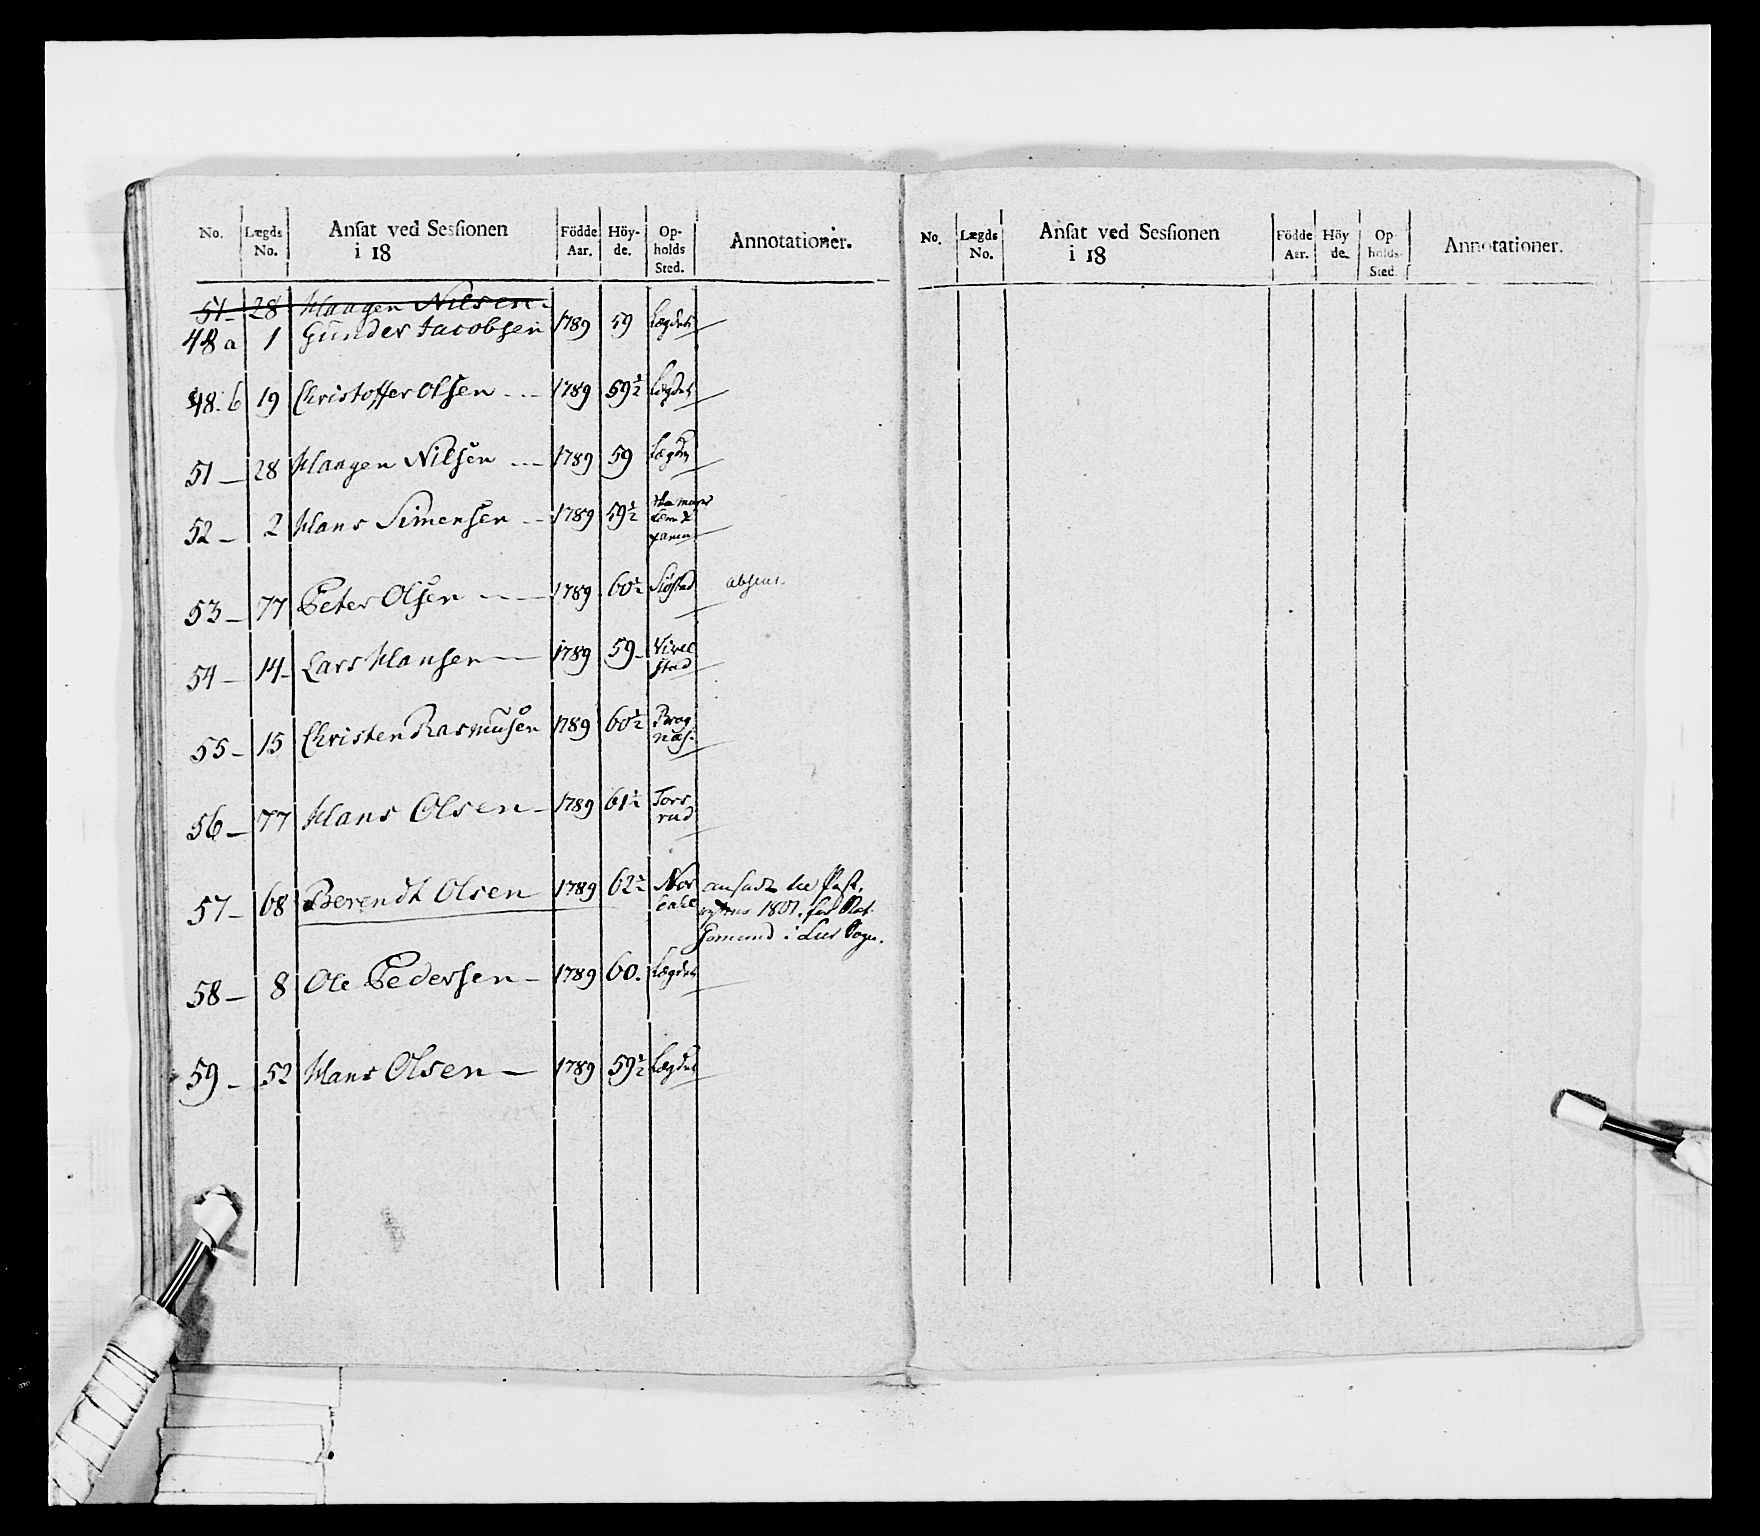 No. Lægds No. Ansat ved Sessionen i 18 Födde Aar. Höy-de. Op-holds Sted. Annotationer.
51 - 28 Haagen Nilsen
48 a 1 Gunder Jacobsen 1789 59 Lægdet
48. b 19 Christoffer Olsen 1789 59½ Lægdet
51 - 28 Haagen Nilsen 1789 59 Lægdet
52 - 2 Hans Simensen 1789 59½
53 - 77 Peter Olsen 1789 60½ absent.
54 - 14 Lars Hansen 1789 59
55 - 15 Christen Rasmusen 1789 60½ Brag näs.
56 - 77 Hans Olsen 1789 61½ Tors rud
57 - 68 Berendt Olsen 1789 62½ ansadt
1801. for
i Lier Sogn.
58 - 8 Ole Pedersen 1789 60. Lægdet
59 - 52 Hans Olsen 1789 59½ Lægdet
No. Lægds No. Ansat ved Sessionen i 18 Födde Aar. Höy de. Op holds-Sted Annotationer.